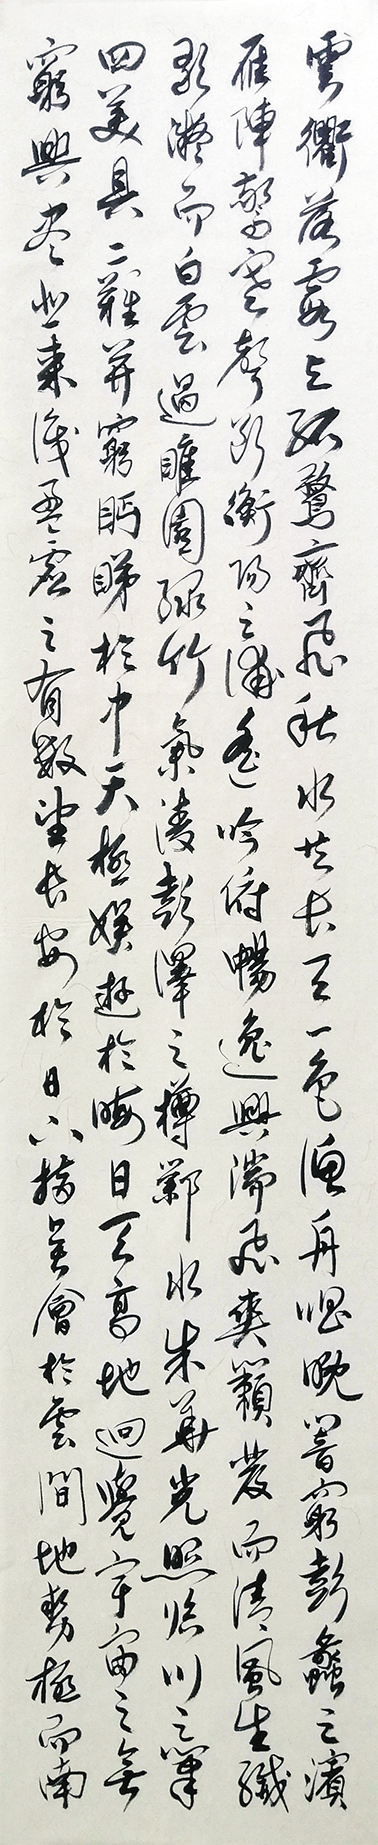 雲衢落霞与孤鶩齊飛秋水共長天一色漁舟唱晚響窮彭蠡之濱
雁陣驚寒聲斷衡陽之浦遙吟俯暢逸興遄飛爽籟發而清風生纖
歌凝而白雲遏睢園綠竹氣凌彭澤之樽鄴水朱華光照臨川之筆
四美具二難并窮眄睇於中天極娛遊於暇日天高地迥覺宇宙之無
窮興盡悲來識盈虛之有數望長安於日下指吳會於雲間地勢極而南